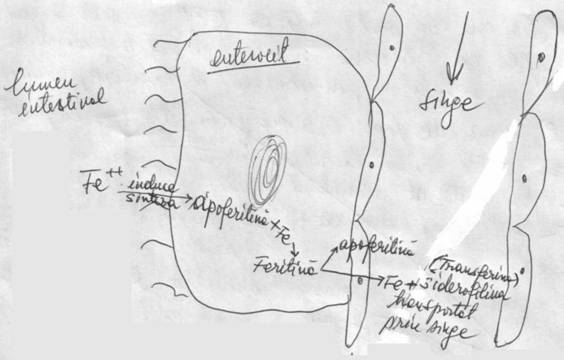 enterocit
lumen
intestinal
sînge
Fe++ induce
sinteza
apoferitină + Fe
Feritină
apoferitină
(transferina)
Fe + siderofilina
transportat
prin sînge